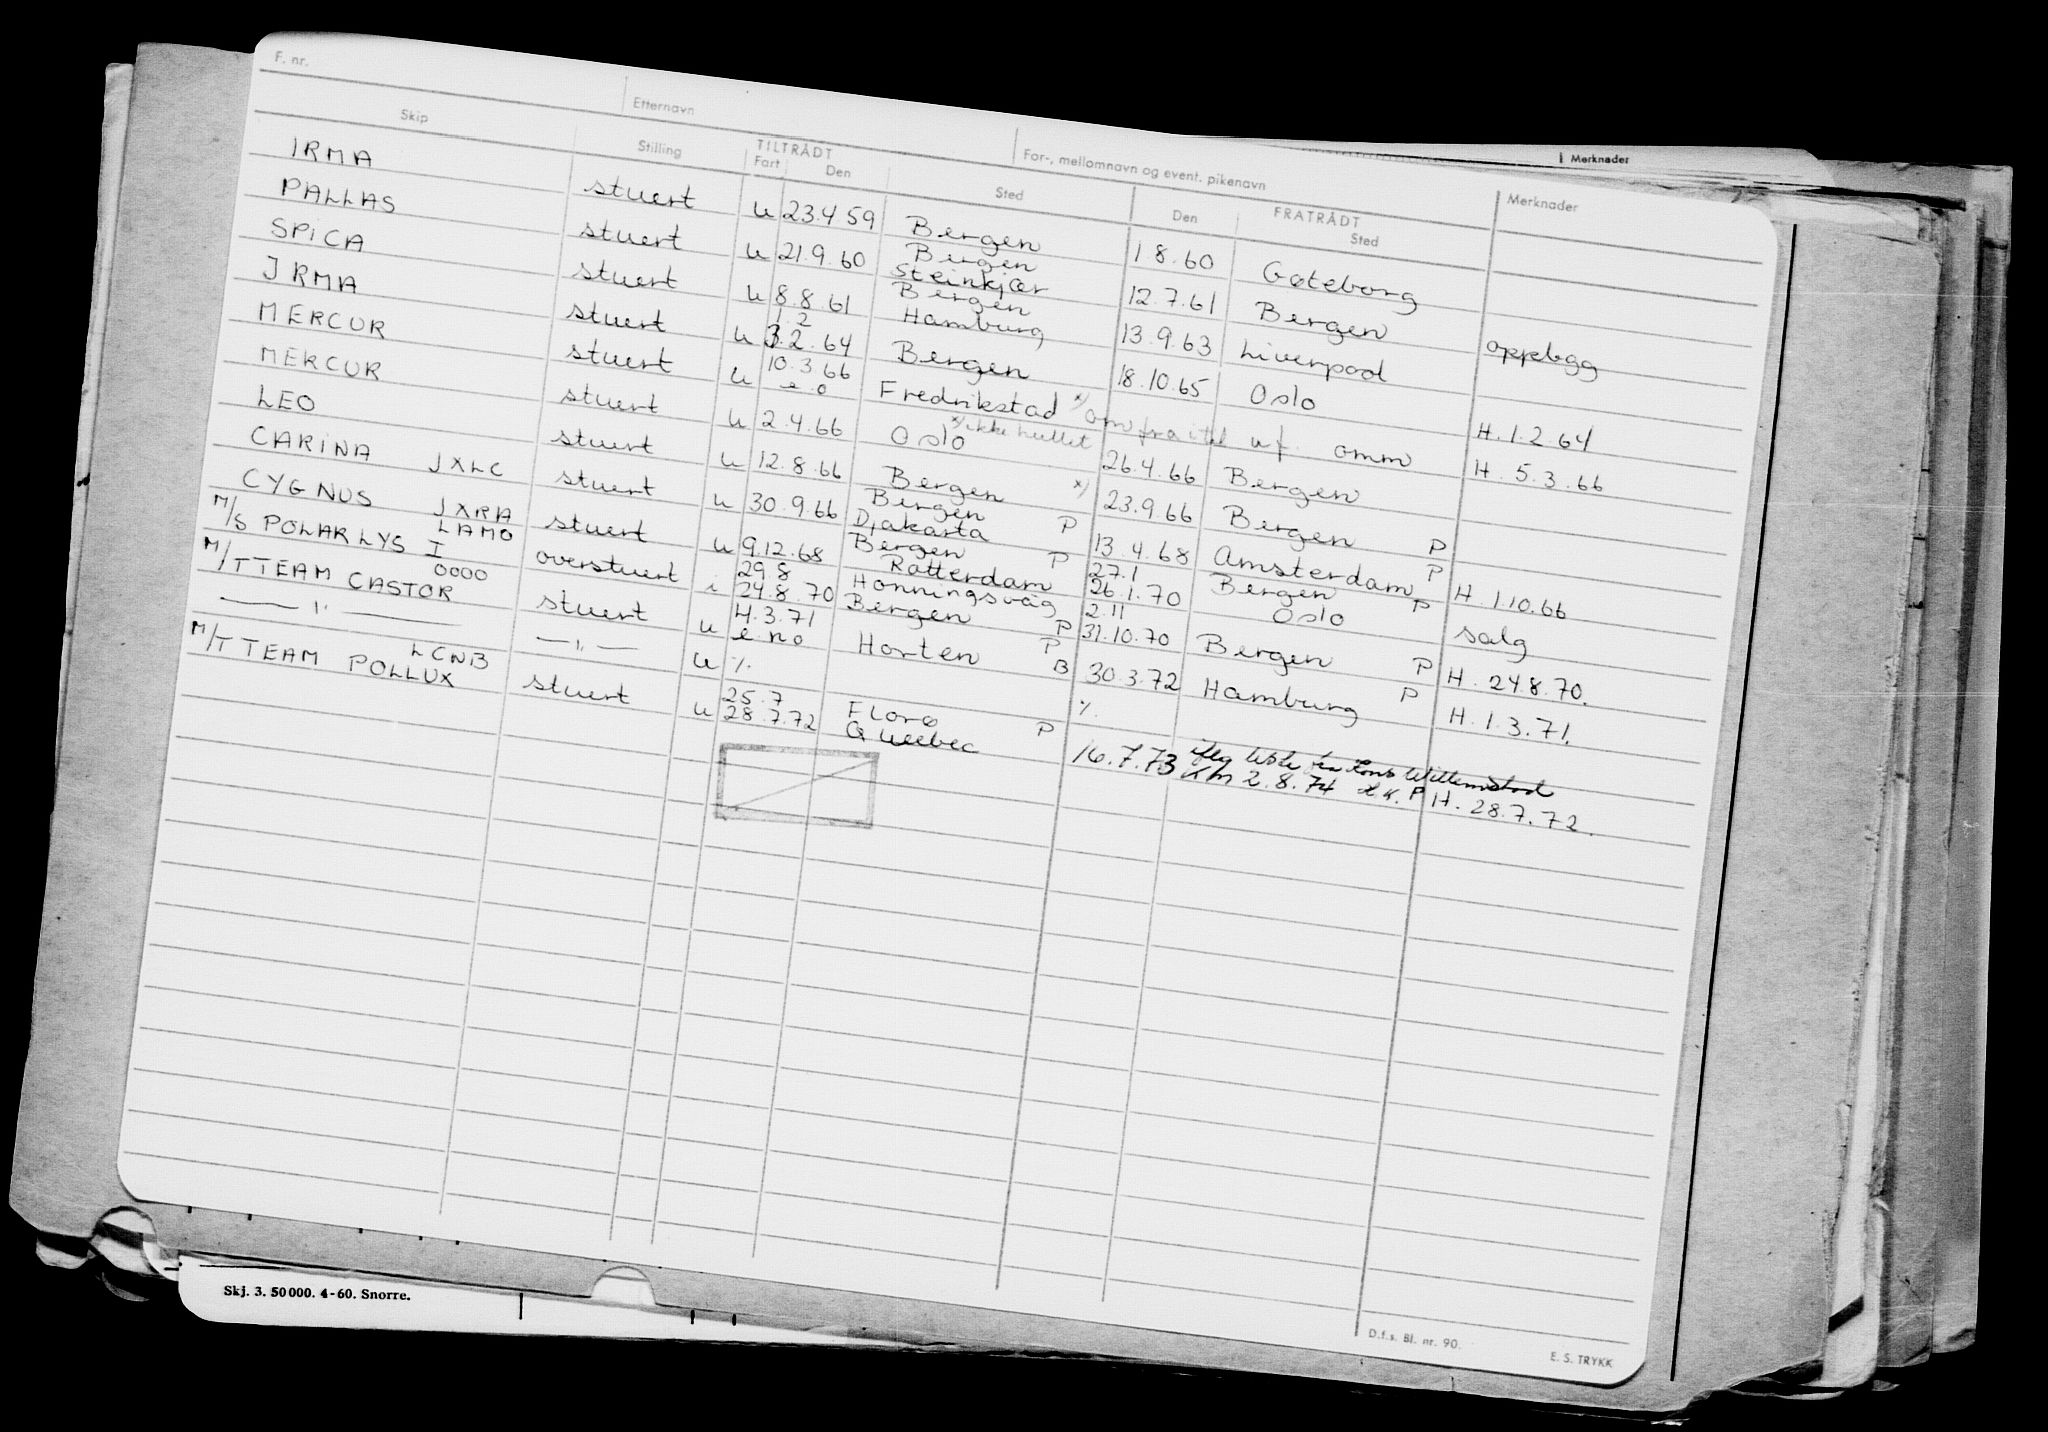 F. nr.
Etternavn
For-, mellomnavn og event. pikenavn
Merknader
Skip
Stilling
TILTRÅDT
Fart
Den
Sted
FRATRÅDT
Den
Sted
Merknader
IRMA stuert u 23.4 59 Bergen 1 8.60 Gøteborg
PALLAS stuert u 21.9.60 Bergen 12.7.61 Bergen opplagg
SPICA stuert u 8.8.61 Steinkjær Bergen 13.9.63 Liverpool
IRMA stuert u 1 2 3.2.64 Hamburg Bergen 18.10.65 Oslo H.1.2 64
MERCUR stuert u 10.3.66 e.o Fredrikstad *) om fra itil u f. omm H. 5.3.66
*) ikke hullet
MERCUR stuert u 2.4.66 Oslo 26.4.66 Bergen
LEO stuert u 12.8.66 Bergen *) 23.9.66 Bergen P
CARINA JXLC stuert u 30.9.66 Bergen Djakarta P 13.4.68 Amsterdam P H.1.10.66
CYGNUS JXRA stuert u 9.12.68 Bergen Rotterdam P 27.1 26.1.70 Bergen Oslo P salg
M/S POLARLYS I LAMO overstuert i 29.8 24.8.70 Honningsvåg Bergen P 2.11 31.10.70 Bergen P H. 24.8.70.
M/T TEAM CASTOR OOOO stuert u 4.3.71 e no Horten P B 30.3.72 Hamburg P H.1.3.71.
— " — — " — u %. %.
M/T TEAM POLLUX LCNB stuert u 25.7 28.7.72 Florø Queebec P 16.7.73 iflg liste fra Kons Willemstad
Km 2.8.74 P H. 28.7.72.
Skj. 3. 50 000. 4-60. Snorre.
D.f.s. Bl. nr. 90.
E. S. TRYKK